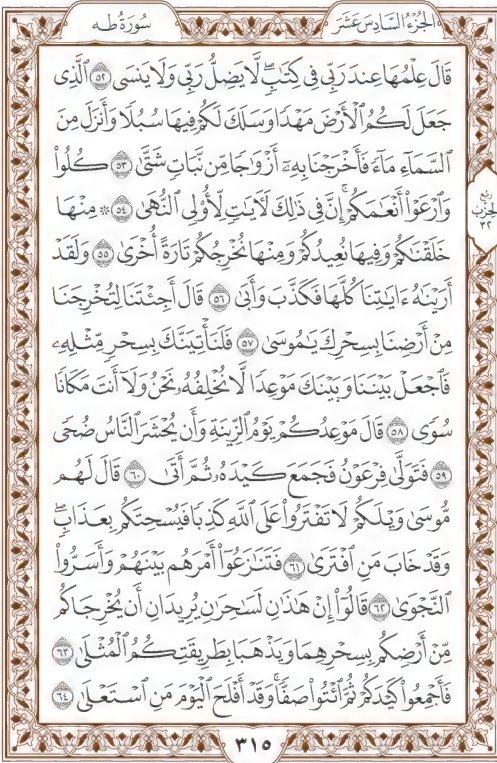 الجزء السادس عشر
سورة طه
قَالَ عِلْمُهَا عِندَ رَبِّي فِي كِتَٰبٖۖ لَّا يَضِلُّ رَبِّي وَلَا يَنسَى ٥٢ ٱلَّذِي
جَعَلَ لَكُمُ ٱلۡأَرۡضَ مَهۡدٗا وَسَلَكَ لَكُمۡ فِيهَا سُبُلٗا وَأَنزَلَ مِنَ
ٱلسَّمَآءِ مَآءٗ فَأَخۡرَجۡنَا بِهِۦٓ أَزۡوَٰجٗا مِّن نَّبَاتٖ شَتَّىٰ ٥٣ كُلُواْ
وَٱرۡعَوۡاْ أَنۡعَٰمَكُمۡۚ إِنَّ فِي ذَٰلِكَ لَأٓيَٰتٖ لِّأُوْلِي ٱلنُّهَىٰ ٥٤ ۞ مِنۡهَا
خَلَقۡنَٰكُمۡ وَفِيهَا نُعِيدُكُمۡ وَمِنۡهَا نُخۡرِجُكُمۡ تَارَةً أُخۡرَىٰ ٥٥ وَلَقَدۡ
أَرَيۡنَٰهُ ءَايَٰتِنَا كُلَّهَا فَكَذَّبَ وَأَبَىٰ ٥٦ قَالَ أَجِئۡتَنَا لِتُخۡرِجَنَا
مِنۡ أَرۡضِنَا بِسِحۡرِكَ يَٰمُوسَىٰ ٥٧ فَلَنَأۡتِيَنَّكَ بِسِحۡرٖ مِّثۡلِهِۦ
فَٱجۡعَلۡ بَيۡنَنَا وَبَيۡنَكَ مَوۡعِدٗا لَّا نُخۡلِفُهُۥ نَحۡنُ وَلَآ أَنتَ مَكَانٗا
سُوٗى ٥٨ قَالَ مَوۡعِدُكُمۡ يَوۡمُ ٱلزِّينَةِ وَأَن يُحۡشَرَ ٱلنَّاسُ ضُحٗى
٥٩ فَتَوَلَّىٰ فِرۡعَوۡنُ فَجَمَعَ كَيۡدَهُۥ ثُمَّ أَتَىٰ ٦٠ قَالَ لَهُم
مُّوسَىٰ وَيۡلَكُمۡ لَا تَفۡتَرُواْ عَلَى ٱللَّهِ كَذِبٗا فَيُسۡحِتَكُم بِعَذَابٖۖ
وَقَدۡ خَابَ مَنِ ٱفۡتَرَىٰ ٦١ فَتَنَٰزَعُوٓاْ أَمۡرَهُم بَيۡنَهُمۡ وَأَسَرُّواْ
ٱلنَّجۡوَىٰ ٦٢ قَالُوٓاْ إِنۡ هَٰذَٰنِ لَسَٰحِرَٰنِ يُرِيدَانِ أَن يُخۡرِجَاكُم
مِّنۡ أَرۡضِكُم بِسِحۡرِهِمَا وَيَذۡهَبَا بِطَرِيقَتِكُمُ ٱلۡمُثۡلَىٰ ٦٣
فَأَجۡمِعُواْ كَيۡدَكُمۡ ثُمَّ ٱئۡتُواْ صَفّٗاۚ وَقَدۡ أَفۡلَحَ ٱلۡيَوۡمَ مَنِ ٱسۡتَعۡلَىٰ ٦٤
ربع
الحزب
٣٢
٣١٥